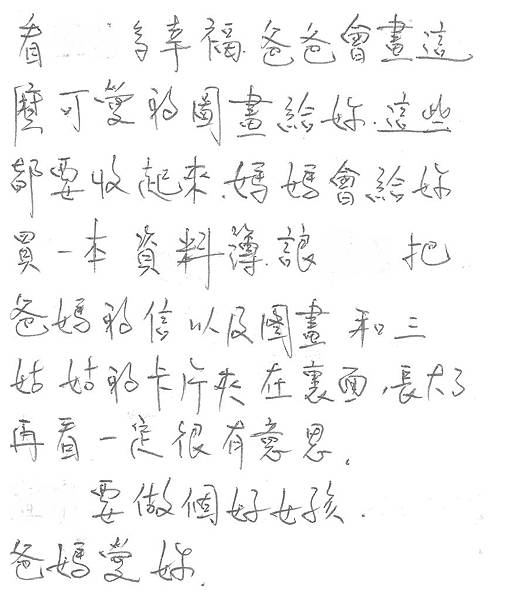 看 多幸福.爸爸會畫這
麼可愛的圖畫給妳.這些
都要收起來.媽媽會給妳
買一本資料簿.讓 把
爸媽的信以及圖畫和三
姑姑的卡片夾在裏面,長大了
再看一定很有意思.
要做個好女孩.
爸媽愛妳.